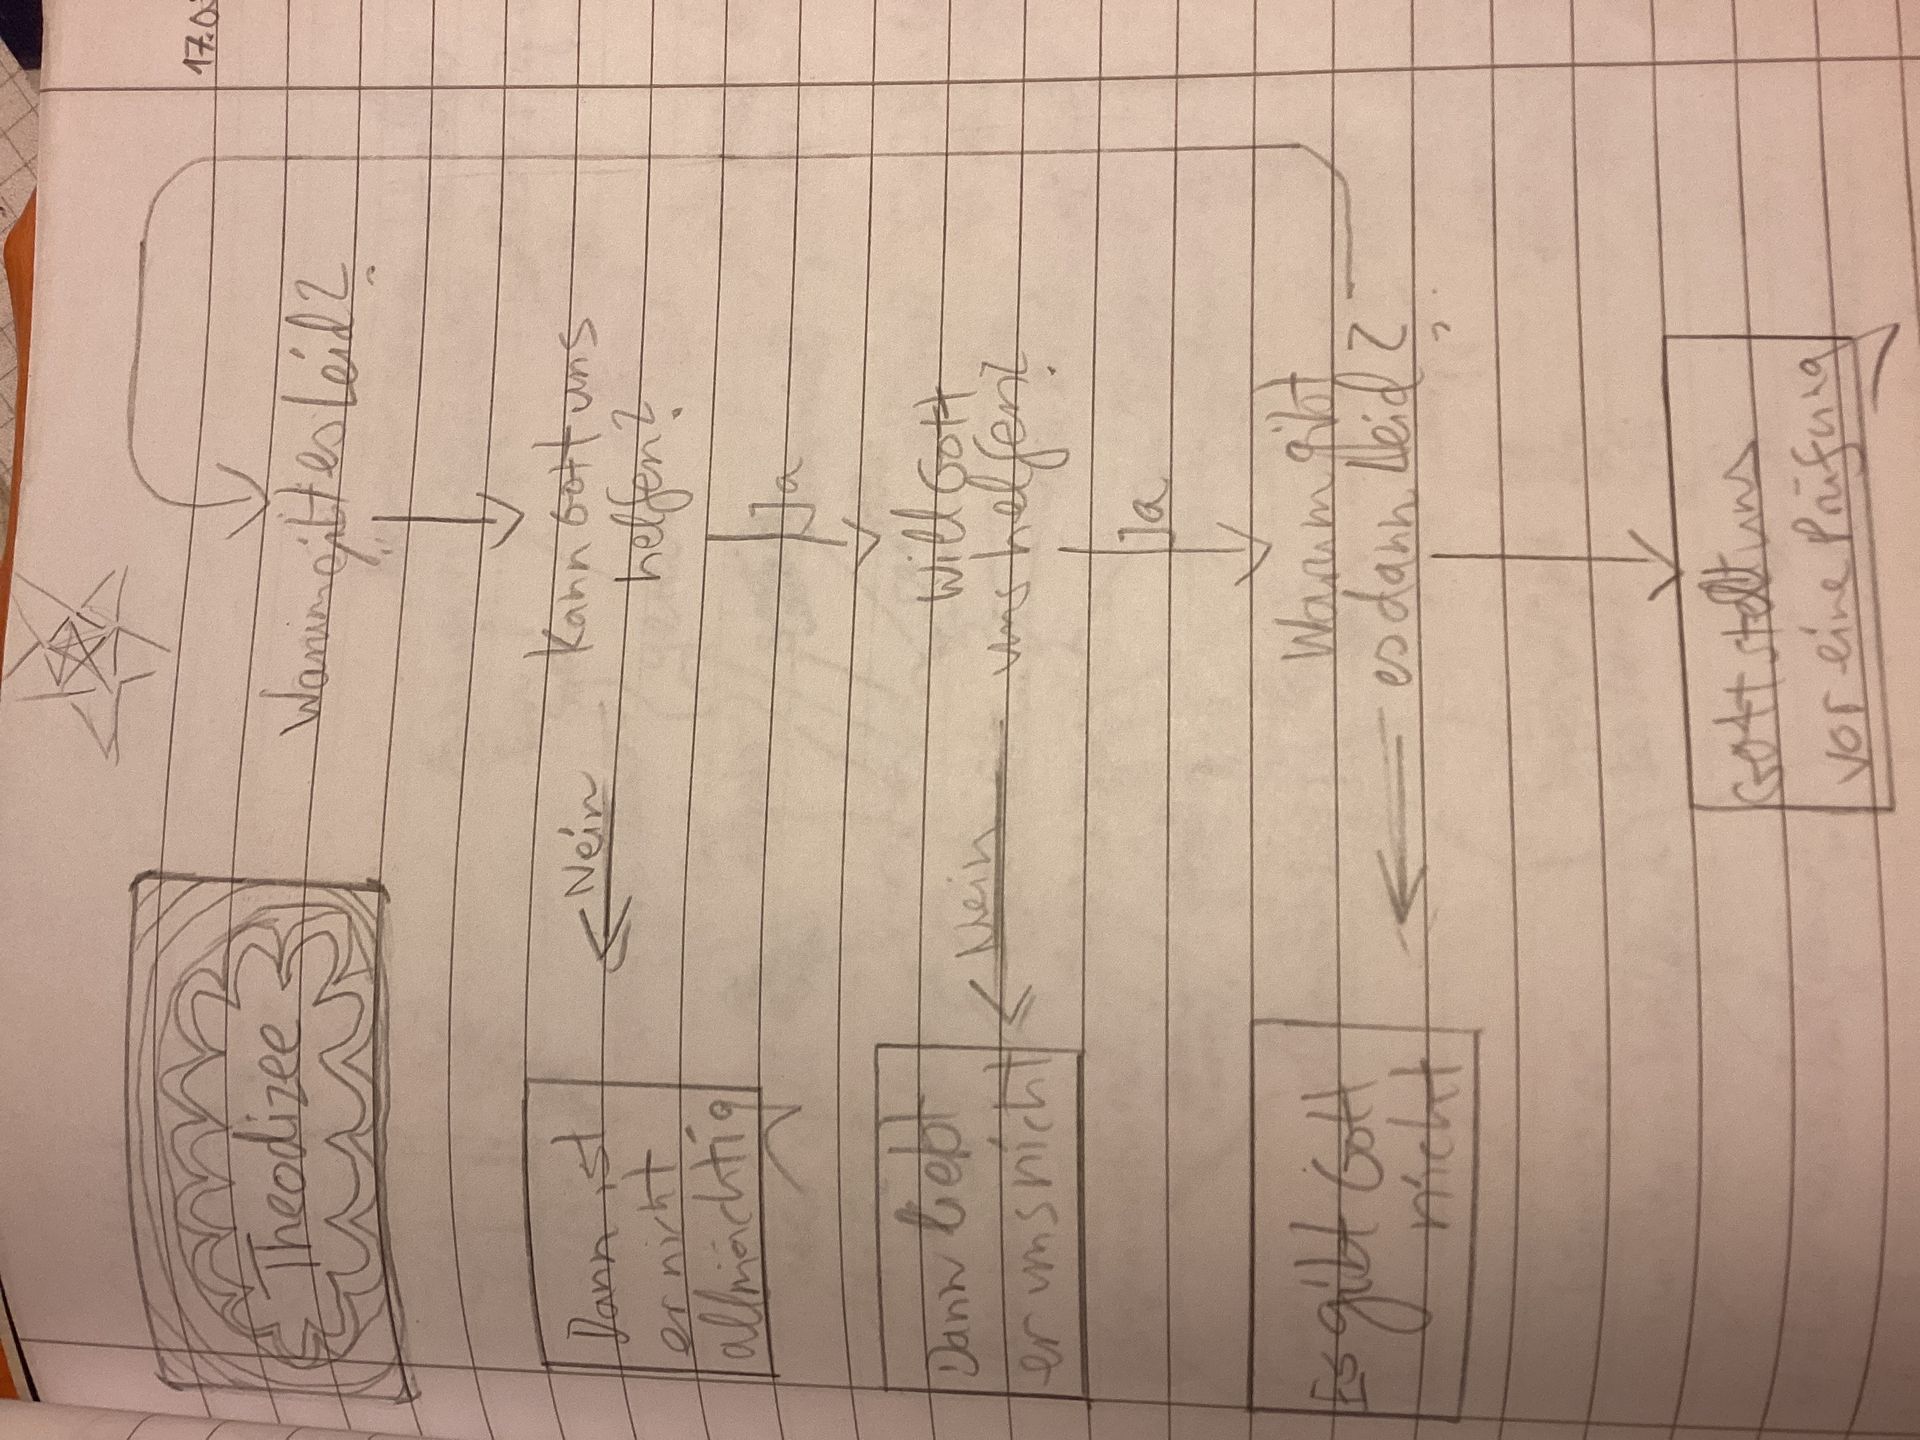 17.0
Theodizee
Warum gibt es Leid?
Kann Gott uns
helfen?
Nein
Dann ist
er nicht
allmächtig
Ja
Will Gott
uns helfen?
Nein
Dann liebt
er uns nicht
Ja
Warum gibt
es dann Leid?
Es gibt Gott
nicht
Gott stellt uns
vor eine Prüfung